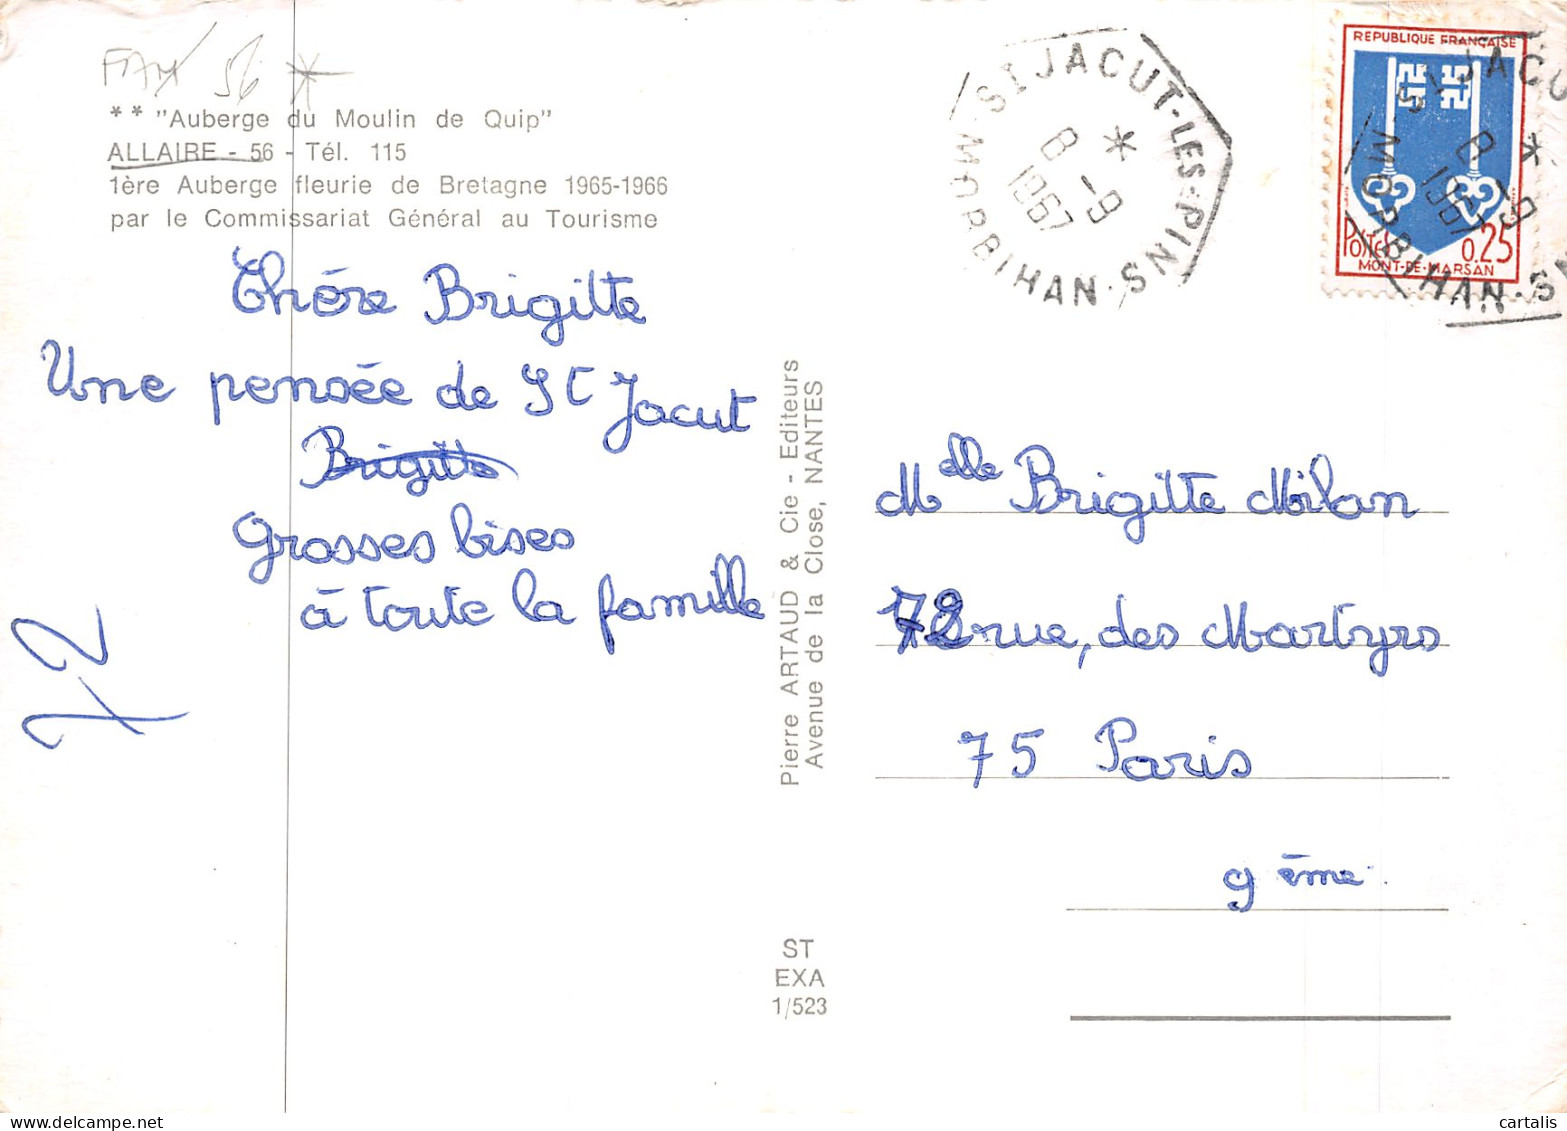 56 *
** "Auberge du Moulin de Quip"
ALLAIRE - 56 - Tél. 115
1ère Auberge fleurie de Bretagne 1965-1966
par le Commissariat Général au Tourisme
Chère Brigitte
Une pensée de St Jacut
Brigitte
Grosses bises
à toute la famille
72
Pierre ARTAUD & Cie - Editeurs
Avenue de la Close, NANTES
ST
EXA
1/523
ST JACUT-LES-PINS
MORBIHAN
8 -9
1967
REPUBLIQUE FRANÇAISE
POSTES 0.25
MONT-DE-MARSAN
ST JACU
8 -9
1967
MORBIHAN
Melle Brigitte Milan
72 rue, des Martyrs
75 Paris
9 ème.
cartalis